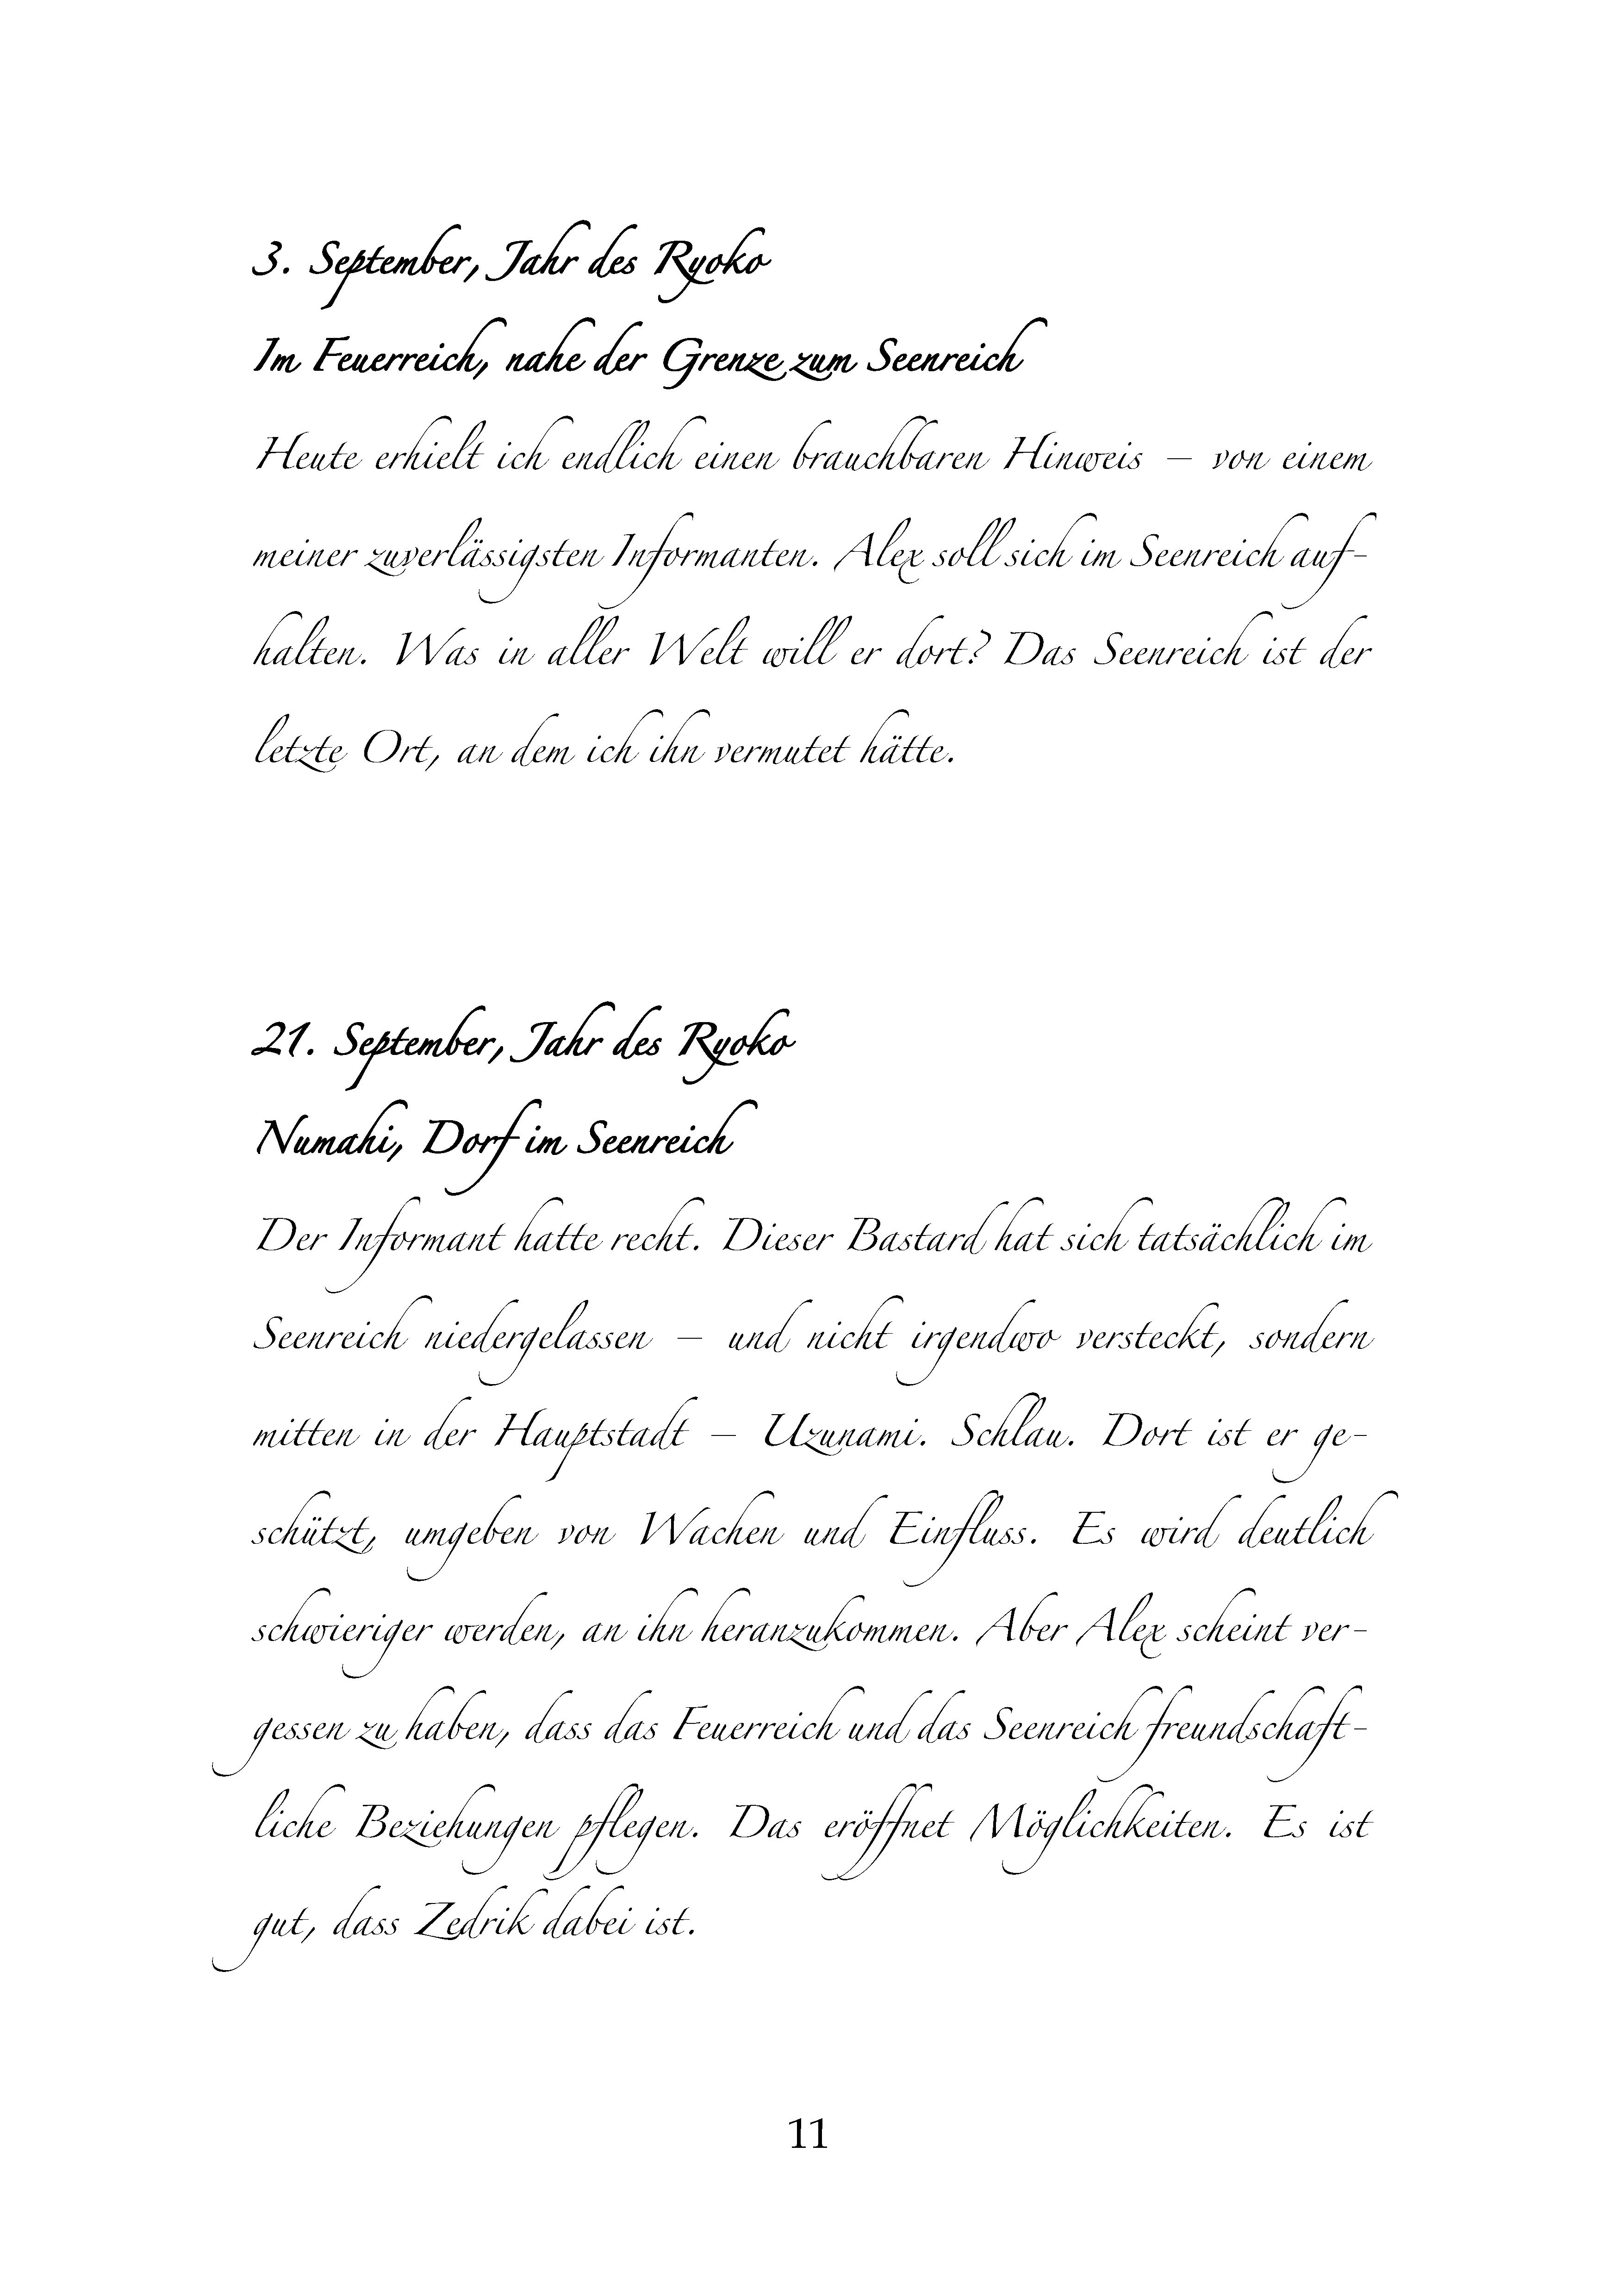 3. September, Jahr des Ryoko
Im Feuerreich, nahe der Grenze zum Seenreich
Heute erhielt ich endlich einen brauchbaren Hinweis – von einem
meiner zuverlässigsten Informanten. Alex soll sich im Seenreich auf-
halten. Was in aller Welt will er dort? Das Seenreich ist der
letzte Ort, an dem ich ihn vermutet hätte.
21. September, Jahr des Ryoko
Numahi, Dorf im Seenreich
Der Informant hatte recht. Dieser Bastard hat sich tatsächlich im
Seenreich niedergelassen – und nicht irgendwo versteckt, sondern
mitten in der Hauptstadt – Uzunami. Schlau. Dort ist er ge-
schützt, umgeben von Wachen und Einfluss. Es wird deutlich
schwieriger werden, an ihn heranzukommen. Aber Alex scheint ver-
gessen zu haben, dass das Feuerreich und das Seenreich freundschaft-
liche Beziehungen pflegen. Das eröffnet Möglichkeiten. Es ist
gut, dass Zedrik dabei ist.
11